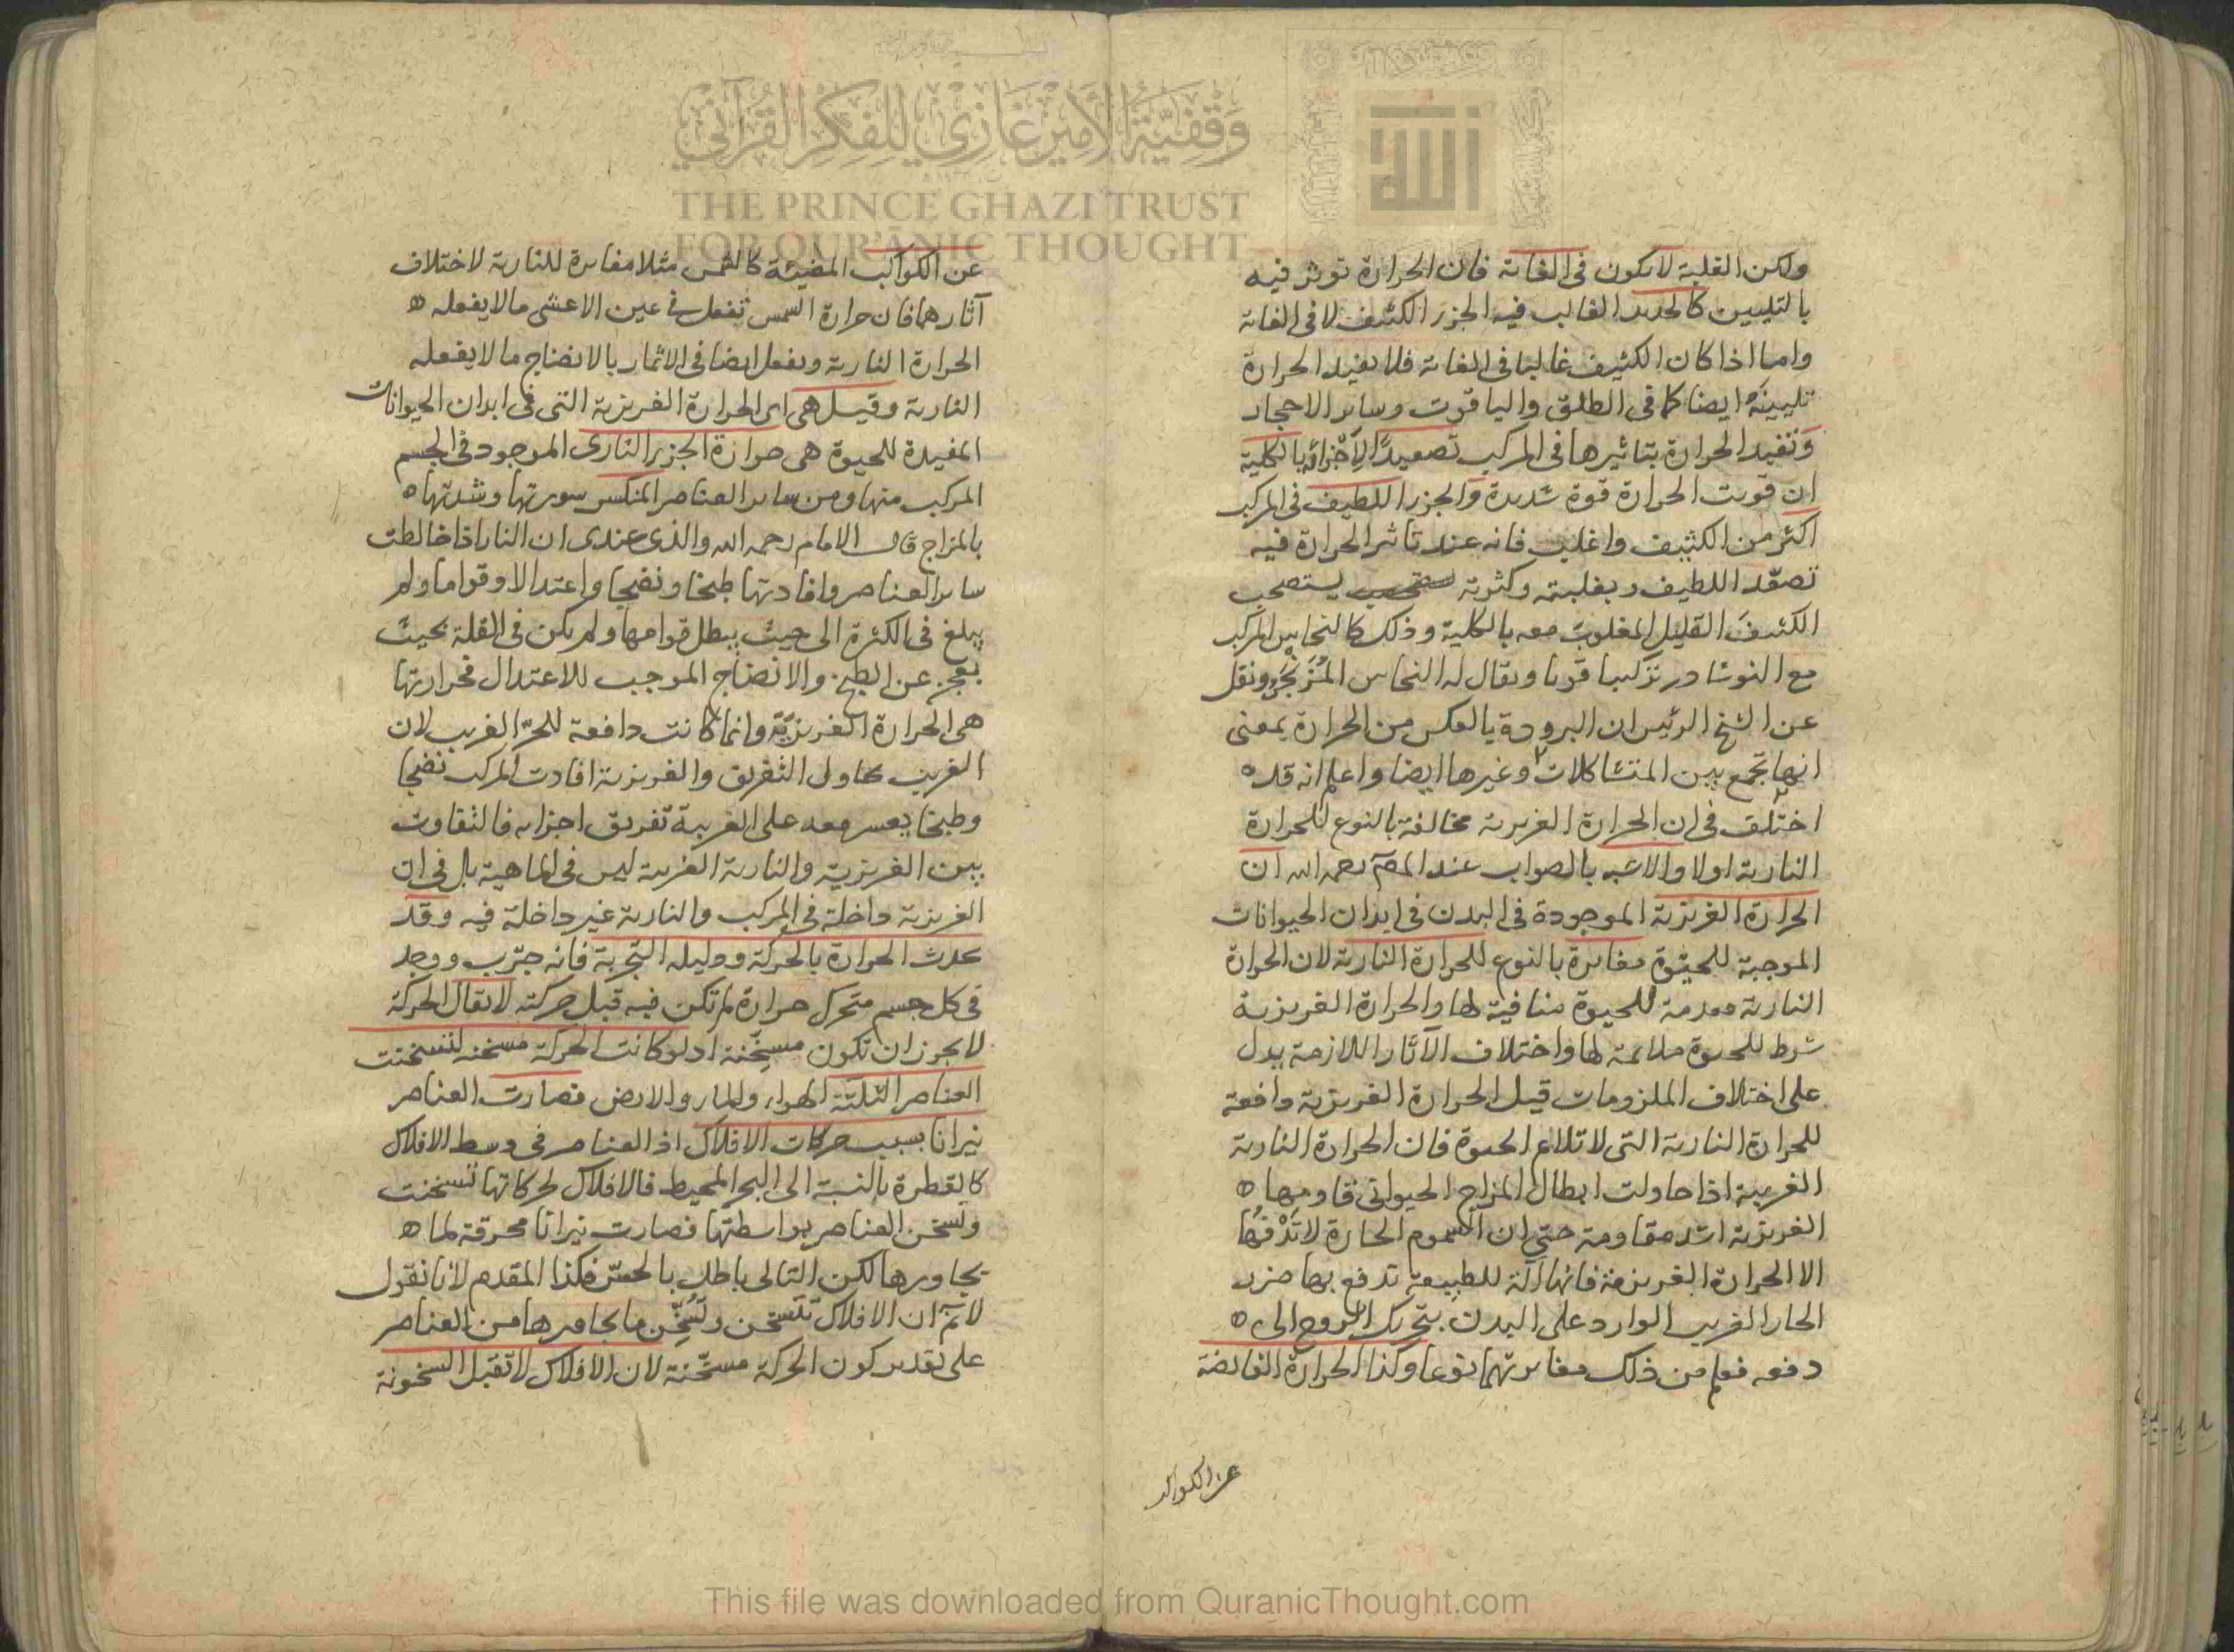 ولكن القلبة لا يكون في الغاية فان الحرارة توثر فيه
بالتليين كالحديد الغالب فيه الجزء الكثيف لا في الغاية
واما اذا كان الكثيف غالبا في الغاية فلا يفيد الحرارة
تليينه ايضا كما في الطلق والياقوت وساير الاحجار
وتفيد الحرارة بتاثيرها في المركب تصعيدا لاجزائه بالكلية
ان قويت الحرارة قوة شديدة والجزء اللطيف في المركب
اكثر من الكثيف واغلب فانه عند تاثير الحرارة فيه
تصعّد اللطيف وبغلبته وكثرته يستصحب
الكثيف القليل المغلوب معه بالكلية وذلك كالنحاس المركب
مع النوشادر تركيبا قويا ويقال له النحاس المزنجر ونقل
عن الشيخ الرئيس ان البرودة بالعكس من الحرارة بمعنى
انها تجمع بين المتشاكلات وغيرها ايضا واعلم انه قد
اختلف في ان الحرارة الغريزية مخالفة بالنوع للحرارة
النارية اولا والاشبه بالصواب عند المص رحمه الله ان
الحرارة الغريزية الموجودة في البدن في ابدان الحيوانات
الموجبة للحيوة مغايرة بالنوع للحرارة النارية لان الحرارة
النارية معدمة للحيوة منافية لها والحرارة الغريزية
شرط للحيوة ملائمة لها واختلاف الآثار اللازمة يدل
على اختلاف الملزومات قيل الحرارة الغريزية دافعة
للحرارة النارية التي لا تلائم الحيوة فان الحرارة النارية
الغريبة اذا حاولت ابطال المزاج الحيواني قاومها
الغريزية اشد مقاومة حتى ان السموم الحارة لا تدفعها
الا الحرارة الغريزية فانها آلة للطبيعة تدفع بها ضرر
الحار الغريب الوارد على البدن بتحريك الروح الى
دفعه فعلم من ذلك مغايرتهما نوعا وكذا الحرارة الفايضة
عن الكواكب
عن الكواكب المضيئة كالشمس مثلا مغايرة للنارية لاختلاف
آثارهما فان حرارة الشمس تفعل في عين الاعشى ما لا يفعله
الحرارة النارية ويفعل ايضا في الاثمار بالانضاج ما لا يفعله
النارية وقيل هي اى الحرارة الغريزية التي في ابدان الحيوانات
المفيدة للحيوة هى حرارة الجزء النارى الموجود في الجسم
المركب منها ومن ساير العناصر المنكسر سورتها وشدتها
بالمزاج قال الامام رحمه الله والذى عندى ان النار اذا خالطت
ساير العناصر وافادتها طبخا ونضجا واعتدالا وقواما ولم
يبلغ في الكثرة الى حيث يبطل قوامها ولم يكن في القلة بحيث
يعجز عن الطبخ والانضاج الموجب للاعتدال فحرارتها
هى الحرارة الغريزيّة وانما كانت دافعة للحرّ الغريب لان
الغريب يحاول التفريق والغريزية افادت المركب نضجا
وطبخا يعسر معه على الغريبة تفريق اجزائه فالتفاوت
بين الغريزية والنارية الغريبة ليس في الماهية بل في ان
الغريزية داخلة في المركب والنارية غير داخلة فيه وقد
يحدث الحرارة بالحركة ودليله التجربة فانه جرّب ووجد
في كل جسم متحرك حرارة لم تكن فيه قبل حركته لا يقال الحركة
لا يجوز ان تكون مسخّنة اذ لو كانت الحركة مسخنة لتسخنت
العناصر الثلثة الهواء والماء والارض فصارت العناصر
نيرانا بسبب حركات الافلاك اذ العناصر في وسط الافلاك
كالقطرة بالنسبة الى البحر المحيط فالافلاك لحركاتها تسخنت
وتسخن العناصر بواسطتها فصارت نيرانا محرقة لما
يجاورها لكن التالى باطل بالحسّ فكذا المقدم لانا نقول
لا نم ان الافلاك تتسخن وتُسَخِّن ما يجاورها من العناصر
على تقدير كون الحركة مسخّنة لان الافلاك لا تقبل السخونة
وقفية الأمير غازي للفكر القرآني
THE PRINCE GHAZI TRUST
FOR QUR'ĀNIC THOUGHT
الله
This file was downloaded from QuranicThought.com